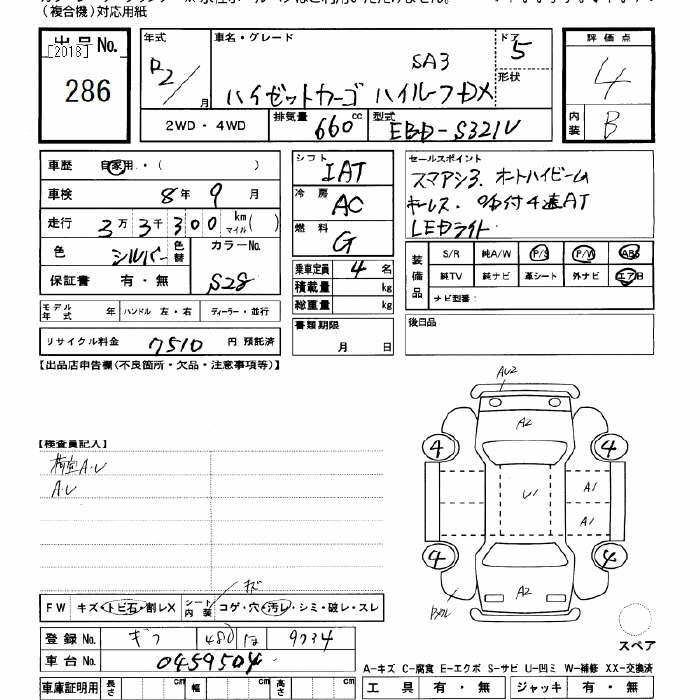 (複合機)対応用紙
出品No.
[2018]
286
年式
R2/
月
車名・グレード
SA3
ハイゼットカーゴ ハイルーフDX
ドア
5
形状
評価点
4
内装
B
2WD・4WD
排気量
660
cc
型式
EBD-S321V
車歴 自家用・( )
車検 8年 9月
走行 3万 3千 300 km マイル ( )
色 シルバー 色替
カラーNo.
S28
保証書 有・無
シフト
IAT
冷房
AC
燃料
G
乗車定員 4 名
積載量 kg
総重量 kg
書類期限
月 日
セールスポイント
スマアシ3. オートハイビーム
キーレス. 4速AT
LEDライト
装備品
S/R 純A/W P/S P/W ABS
純TV 純ナビ 革シート 外ナビ エアB
ナビ型番:
後日品
モデル年式 年 ハンドル 左・右 ディーラー・並行
リサイクル料金 7510 円 預託済
【出品店申告欄(不良箇所・欠品・注意事項等)】
【検査員記入】
荷室A.U
A.U
AU2
A2
4
4
U1
A1
A1
4
4
A2
スペア
キズ
FW キズ・トビ石・割レX シート内装 コゲ・穴・汚レ・シミ・破レ・スレ
登録No. ギフ 480 は 9734
車台No. 0459504
車庫証明用 長さ cm 幅 cm 高さ cm
A-キズ C-腐食 E-エクボ S-サビ U-凹ミ W-補修 XX-交換済
工具 有・無 ジャッキ 有・無